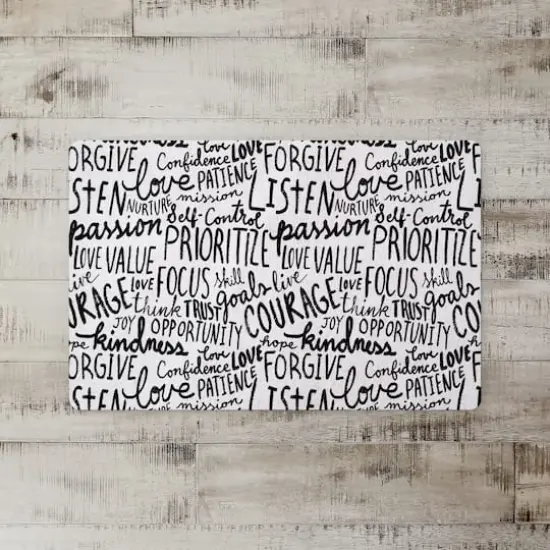 ORGIVE Confidence love LOVE FORGIVE Confidence love LOVE
ISTEN love PATIENCE LISTEN love PATIENCE
NURTURE mission NURTURE mission
passion Self-Control passion Self-Control
LOVE VALUE PRIORITIZE LOVE VALUE
live LOVE FOCUS skill live LOVE FOCUS skill
URAGE think TRUST goals COURAGE think TRUST goals COU
JOY OPPORTUNITY JOY OPPORTUNITY
hope kindness hope kindness
ORGIVE Confidence love LOVE FORGIVE Confidence love LOVE
ISTEN love PATIENCE LISTEN love PATIENCE
mission mission